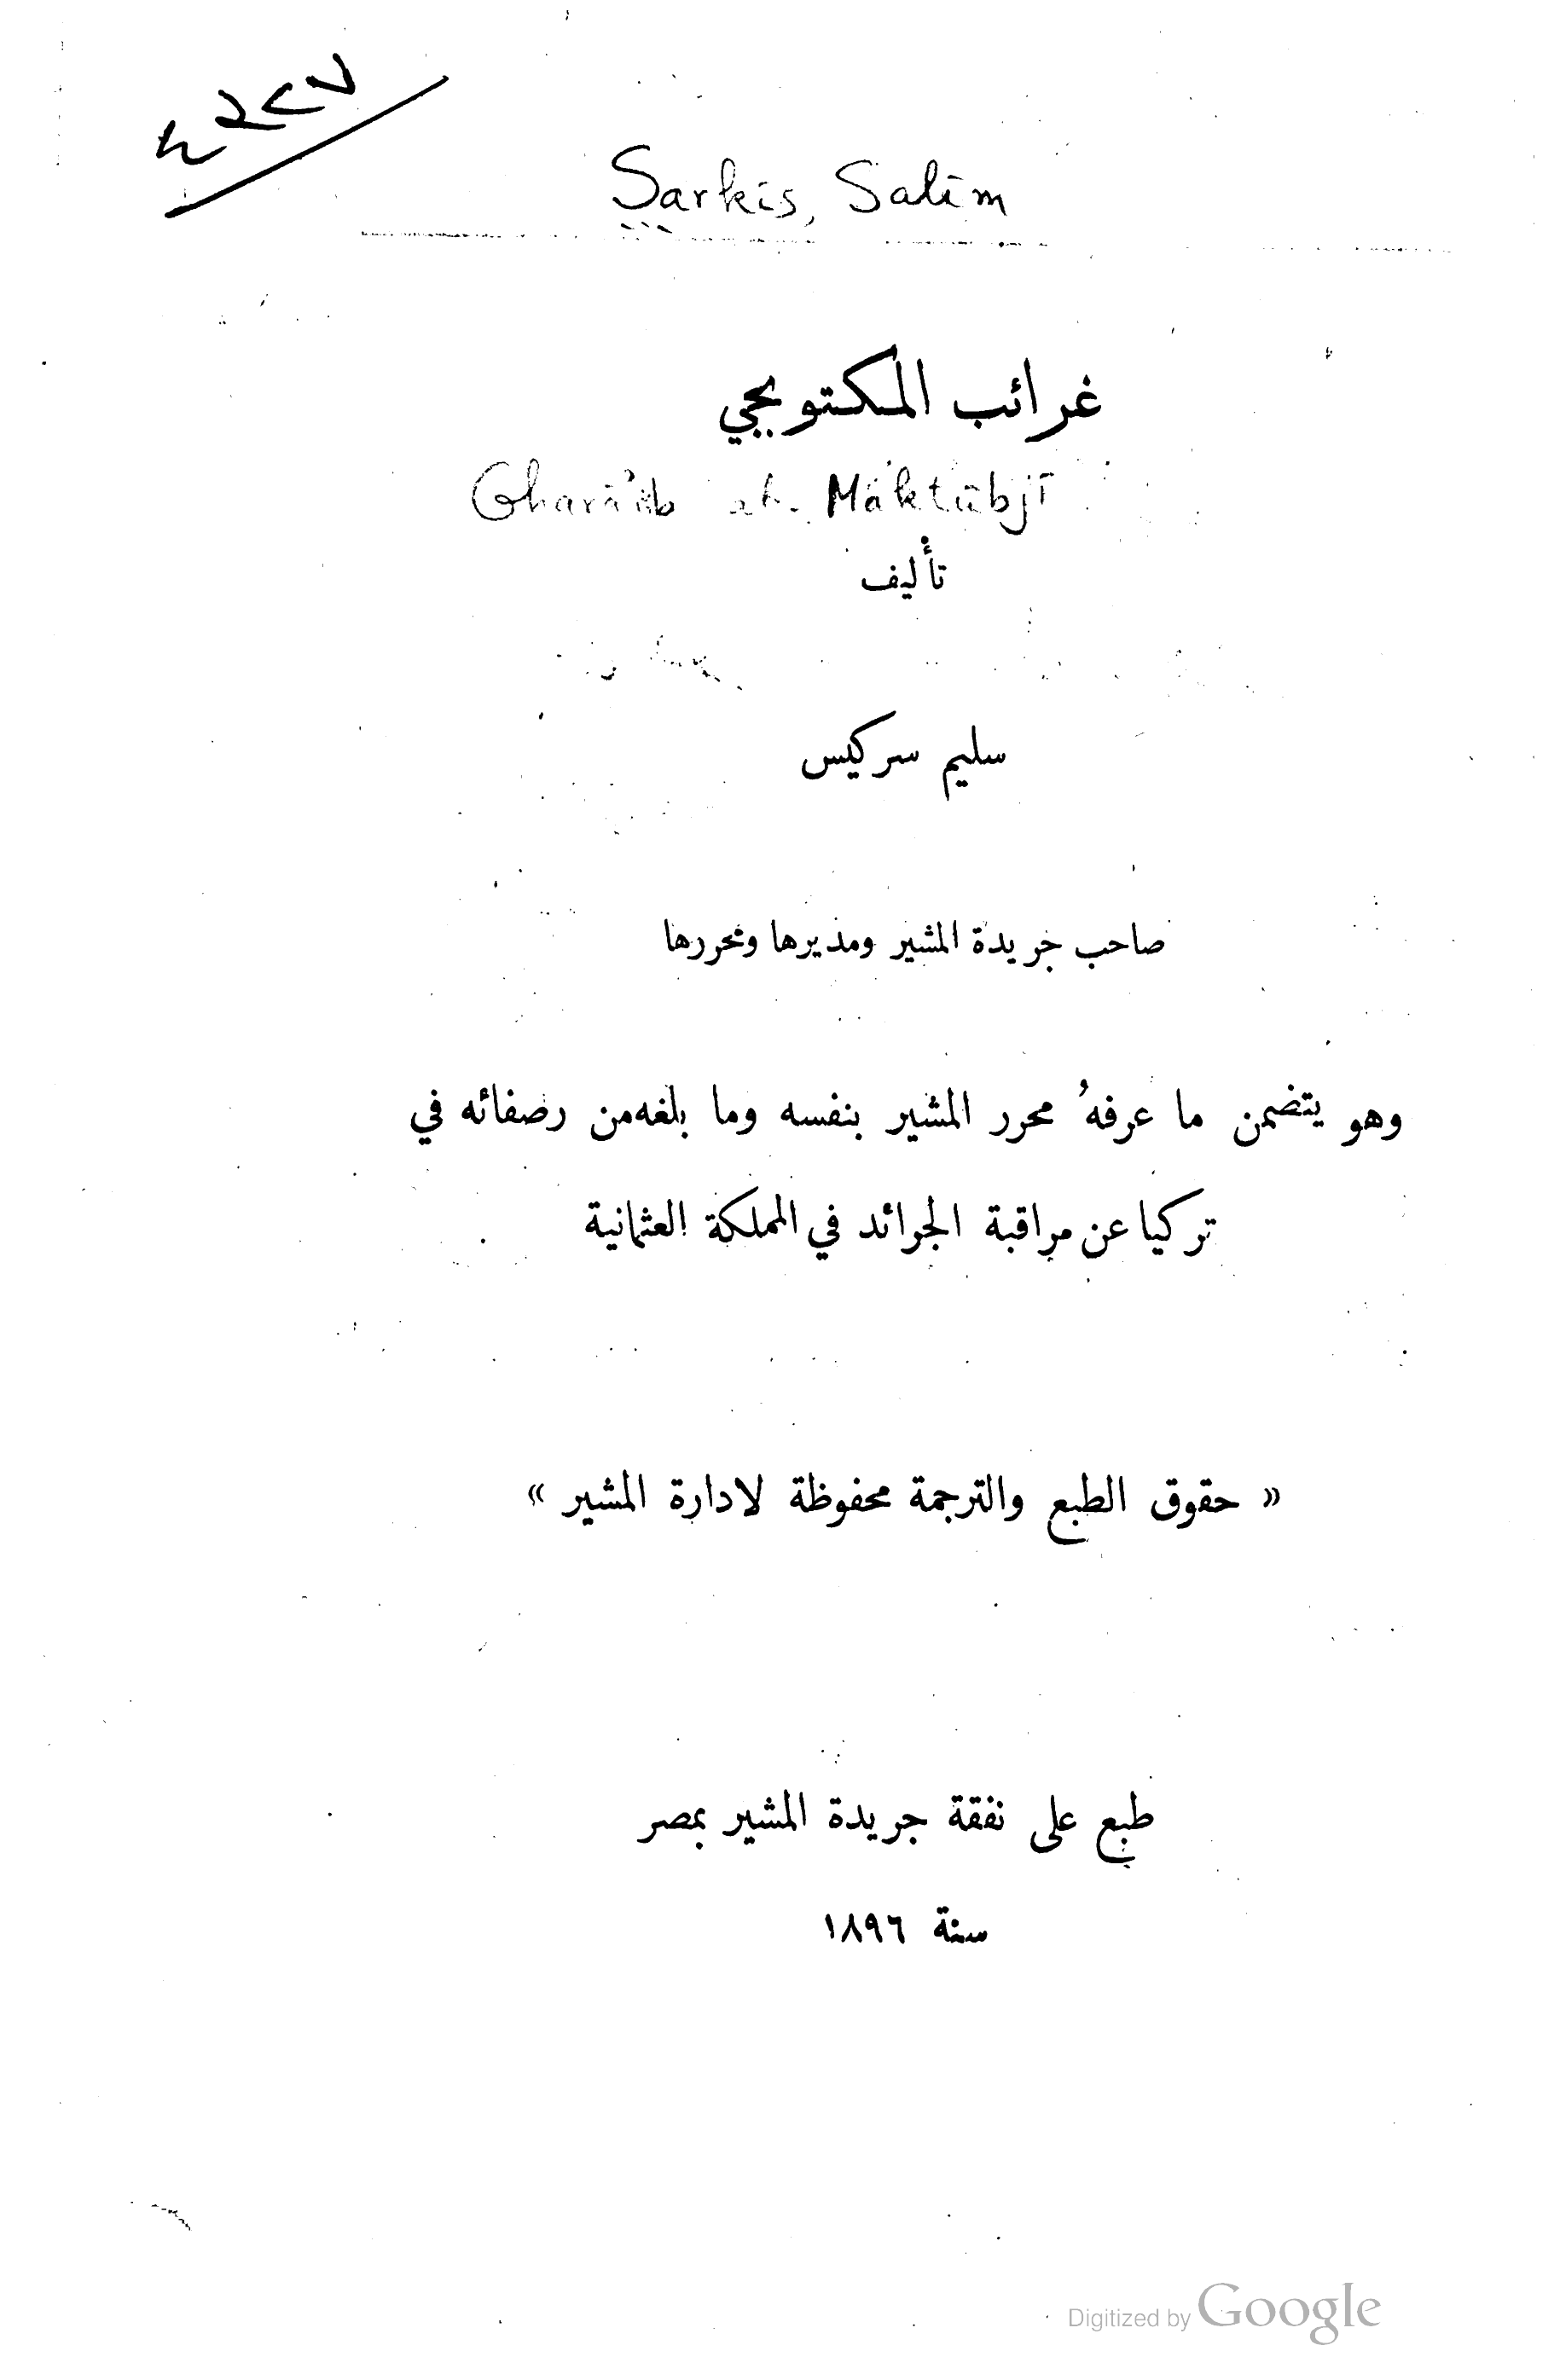 Sarkis, Salim
غرائب المكتوبجي
Gharā'ib al- Maktūbjī
تأليف
سليم سركيس
صاحب جريدة المشير ومديرها ومحررها
وهو يتضمن ما عرفهُ محرر المشير بنفسه وما بلغه من رصفائه في
تركيا عن مراقبة الجرائد في المملكة العثمانية
« حقوق الطبع والترجمة محفوظة لادارة المشير »
طبع على نفقة جريدة المشير بمصر
سنة ١٨٩٦
Digitized by Google